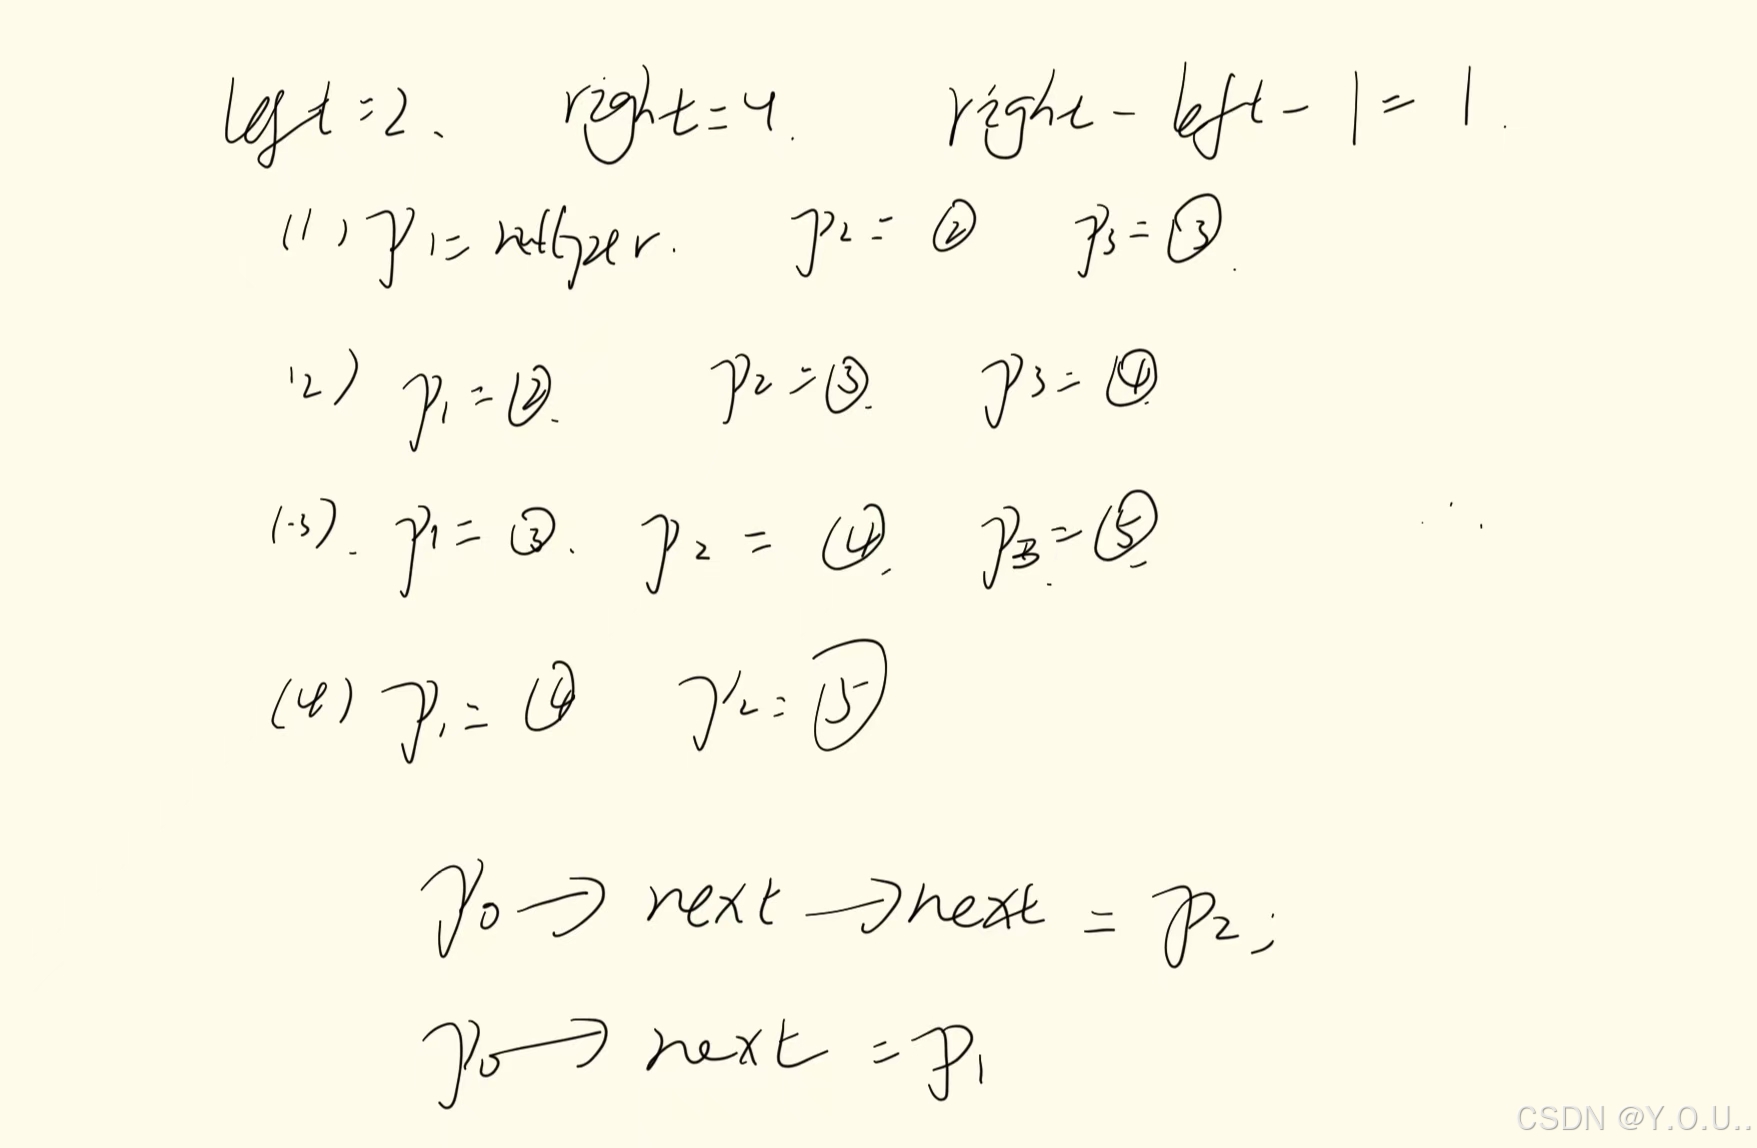 left=2. right=4. right - left - 1 = 1.
(1) p1= nullptr. p2= ② p3= ③.
(2) p1=②. p2=③. p3=④.
(3). p1=③. p2=④. p3=⑤.
(4) p1=④ p2=⑤
p0→next→next = p2;
p0→next = p1
CSDN @Y.O.U..